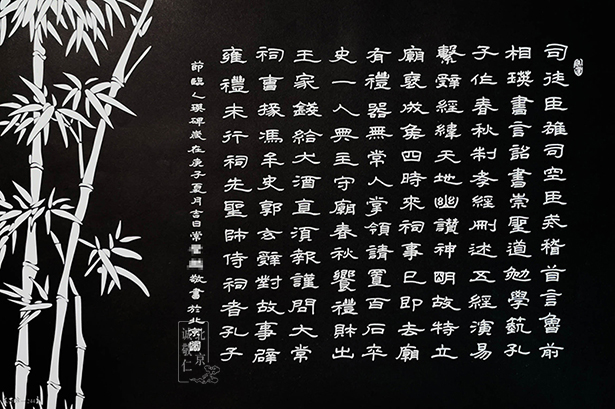 司徒臣雄司空臣戒稽首言魯前
相瑛書言詔書崇聖道勉學藝孔
子作春秋制孝經刪述五經演易
繫辭經緯天地幽讚神明故特立
廟褒成侯四時來祠事已即去廟
有禮器無常人掌領請置百石卒
史一人典主守廟春秋饗禮財出
王家錢給犬酒直須報謹問大常
祠曹掾馮牟史郭玄辭對故事辟
雍禮未行祠先聖師侍祠者孔子
節臨乙瑛碑歲在庚子夏月吉日常敬書於北京
北京
诚敬仁